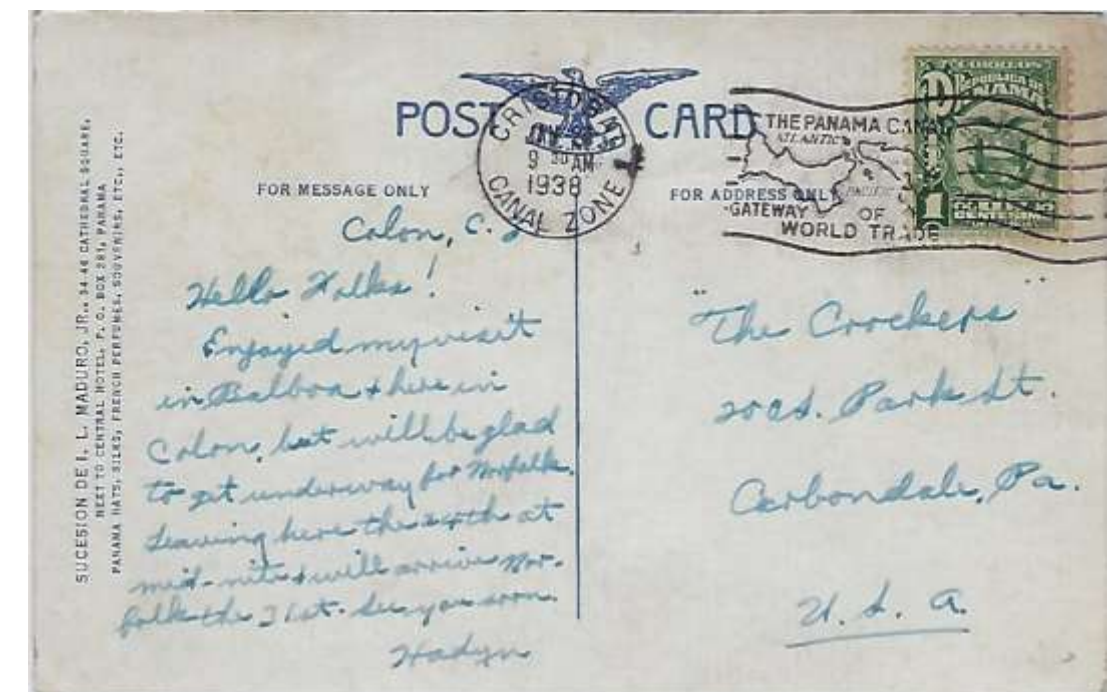 SUCESION DE I. L. MADURO, JR., 34-46 CATHEDRAL SQUARE,
NEXT TO CENTRAL HOTEL, P. O. BOX 281, PANAMA
PANAMA HATS, SILKS, FRENCH PERFUMES, SOUVENIRS, ETC., ETC.
POST CARD
FOR MESSAGE ONLY
FOR ADDRESS ONLY
CRISTOBAL
9 30 AM
1938
CANAL ZONE
THE PANAMA CANAL
ATLANTIC
PACIFIC
GATEWAY OF
WORLD TRADE
CORREOS
REPUBLICA DE
PANAMA
1
Colon, C. Z
Hello Folks!
Enjoyed my visit
in Balboa & here in
Colon, but will be glad
to get underway for Norfolk.
Leaving here the 24th at
mid-nite & will arrive Nor-
folk the 31st. See you soon.
Hadyn
"The Crockers"
Park St.
Carbondale, Pa.
U. S. A.